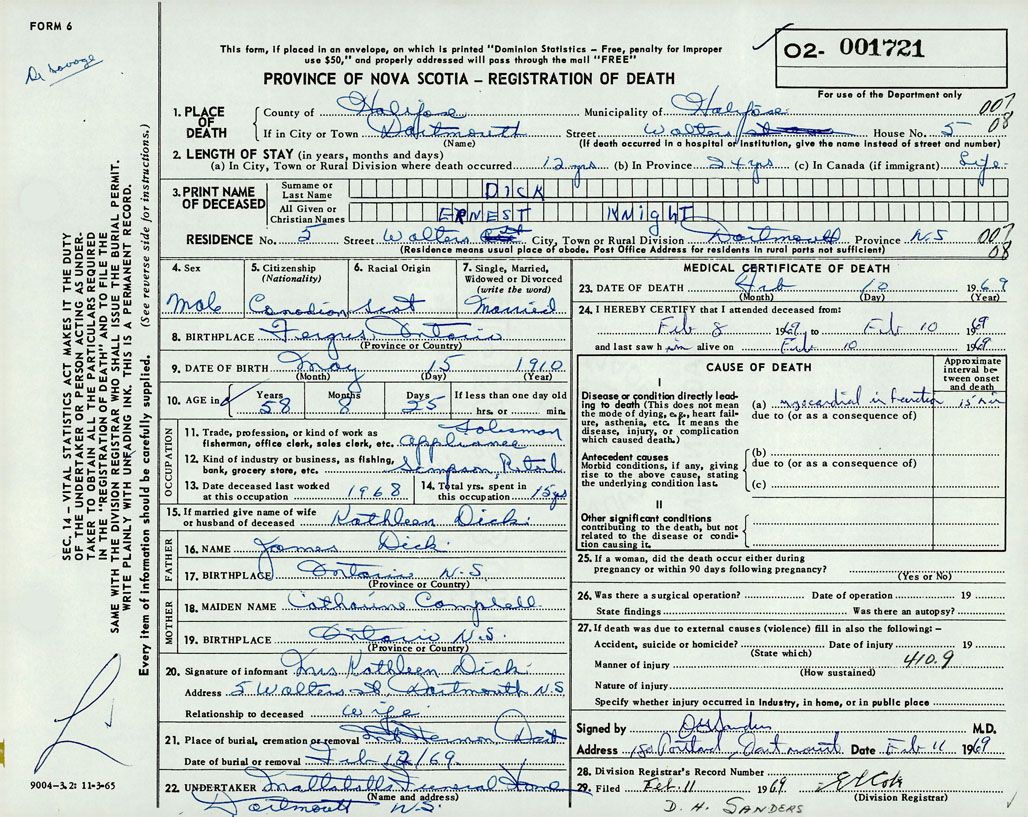 FORM 6
Dr Savage
This form, if placed in an envelope, on which is printed "Dominion Statistics – Free, penalty for improper
use $50," and properly addressed will pass through the mail "FREE"
PROVINCE OF NOVA SCOTIA – REGISTRATION OF DEATH
02- 001721
For use of the Department only
SEC. 14 – VITAL STATISTICS ACT MAKES IT THE DUTY
OF THE UNDERTAKER OR PERSON ACTING AS UNDER-
TAKER TO OBTAIN ALL THE PARTICULARS REQUIRED
IN THE "REGISTRATION OF DEATH" AND TO FILE THE
SAME WITH THE DIVISION REGISTRAR WHO SHALL ISSUE THE BURIAL PERMIT.
WRITE PLAINLY WITH UNFADING INK. THIS IS A PERMANENT RECORD.
Every item of information should be carefully supplied. (See reverse side for instructions.)
1. PLACE OF DEATH County of Halifax Municipality of Halifax 007
If in City or Town Dartmouth Street Walters House No. 5 08
(Name) (If death occurred in a hospital or institution, give the name instead of street and number)
2. LENGTH OF STAY (in years, months and days)
(a) In City, Town or Rural Division where death occurred 12 yrs (b) In Province 24 yrs (c) In Canada (if immigrant) Life
3. PRINT NAME OF DECEASED Surname or Last Name DICK
All Given or Christian Names ERNEST KnighT
RESIDENCE No. 5 Street Walters City, Town or Rural Division Dartmouth Province N.S 007
(Residence means usual place of abode. Post Office Address for residents in rural parts not sufficient) 08
4. Sex Male
5. Citizenship (Nationality) Canadian
6. Racial Origin Scot
7. Single, Married, Widowed or Divorced (write the word) Married
8. BIRTHPLACE Fergus, Ontario
(Province or Country)
9. DATE OF BIRTH May 15 1910
(Month) (Day) (Year)
10. AGE in Years 58 Months 8 Days 25 If less than one day old hrs. or min.
OCCUPATION
11. Trade, profession, or kind of work as Salesman
fisherman, office clerk, sales clerk, etc. appliance
12. Kind of industry or business, as fishing,
bank, grocery store, etc. Simpson, Retail
13. Date deceased last worked at this occupation 1968
14. Total yrs. spent in this occupation 15 yrs
15. If married give name of wife or husband of deceased Kathleen Dick
FATHER
16. NAME James Dick
17. BIRTHPLACE Ontario N.S
(Province or Country)
MOTHER
18. MAIDEN NAME Catharine Campbell
19. BIRTHPLACE Ontario N.S.
(Province or Country)
20. Signature of informant Mrs Kathleen Dick
Address 5 Walters St Dartmouth N.S
Relationship to deceased wife
21. Place of burial, cremation or removal Mt Hermon, Dart
Date of burial or removal Feb 12/69
22. UNDERTAKER Mattatall's Funeral Home
(Name and address)
Dartmouth N.S.
9004–3.2: 11-3-65
MEDICAL CERTIFICATE OF DEATH
23. DATE OF DEATH Feb 10 1969
(Month) (Day) (Year)
24. I HEREBY CERTIFY that I attended deceased from:
Feb 8 1969, to Feb 10 1969
and last saw him alive on Feb 10 1969
CAUSE OF DEATH
Approximate interval between onset and death
I
Disease or condition directly leading to death (This does not mean the mode of dying, e.g., heart failure, asthenia, etc. It means the disease, injury, or complication which caused death.)
(a) myocardial infarction 15 min
due to (or as a consequence of)
Antecedent causes
Morbid conditions, if any, giving rise to the above cause, stating the underlying condition last.
(b)
due to (or as a consequence of)
(c)
II
Other significant conditions
contributing to the death, but not related to the disease or condition causing it.
25. If a woman, did the death occur either during
pregnancy or within 90 days following pregnancy?
(Yes or No)
26. Was there a surgical operation? Date of operation 19
State findings Was there an autopsy?
27. If death was due to external causes (violence) fill in also the following: –
Accident, suicide or homicide? Date of injury 19
(State which)
Manner of injury 410.9
(How sustained)
Nature of injury
Specify whether injury occurred in industry, in home, or in public place
Signed by DHSanders M.D.
Address 180 Portland, Dartmouth Date Feb 11 1969
28. Division Registrar's Record Number
29. Filed Feb. 11 1969
(Division Registrar)
D. H. SANDERS